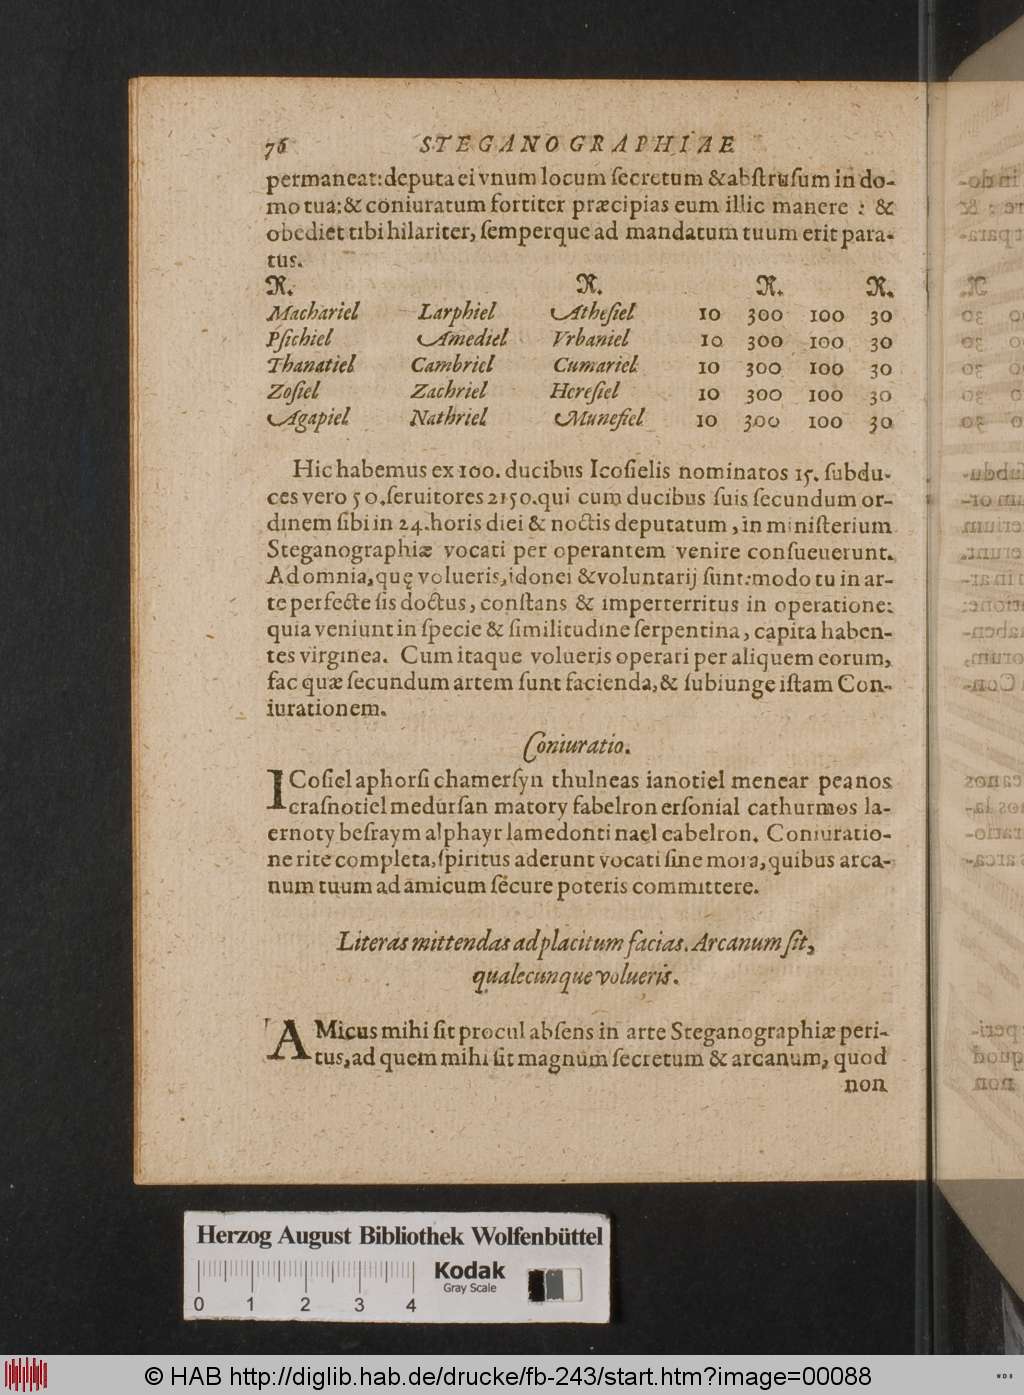 76 STEGANOGRAPHIAE
permaneat: deputa ei vnum locum ſecretum & abſtruſum in do-
mo tua: & coniuratum fortiter præcipias eum illic manere : &
obediet tibi hilariter, ſemperque ad mandatum tuum erit para-
tus.
R. R. R. R.
Machariel Larphiel Atheſiel 10 300 100 30
Pſichiel Amediel Vrbaniel 10 300 100 30
Thanatiel Cambriel Cumariel 10 300 100 30
Zoſiel Zachriel Hereſiel 10 300 100 30
Agapiel Nathriel Muneſiel 10 300 100 30
Hic habemus ex 100. ducibus Icoſielis nominatos 15. ſubdu-
ces vero 50. ſeruitores 2150. qui cum ducibus ſuis ſecundum or-
dinem ſibi in 24. horis diei & noctis deputatum, in miniſterium
Steganographiæ vocati per operantem venire conſueuerunt.
Ad omnia, quę volueris, idonei & voluntarij ſunt: modo tu in ar-
te perfecte ſis doctus, conſtans & imperterritus in operatione:
quia veniunt in ſpecie & ſimilitudine ſerpentina, capita haben-
tes virginea. Cum itaque volueris operari per aliquem eorum,
fac quæ ſecundum artem ſunt facienda, & ſubiunge iſtam Con-
iurationem.
Coniuratio.
ICoſiel aphorſi chamerſyn thulneas ianotiel menear peanos
craſnotiel medurſan matory fabelron erſonial cathurmos la-
ernoty beſraym alphayr lamedonti nael cabelron. Coniuratio-
ne rite completa, ſpiritus aderunt vocati ſine mora, quibus arca-
num tuum ad amicum ſecure poteris committere.
Literas mittendas ad placitum facias. Arcanum ſit,
qualecunque volueris.
AMicus mihi ſit procul abſens in arte Steganographiæ peri-
tus, ad quem mihi ſit magnum ſecretum & arcanum, quod
non
Herzog August Bibliothek Wolfenbüttel
Kodak
Gray Scale
0 1 2 3 4
© HAB http://diglib.hab.de/drucke/fb-243/start.htm?image=00088